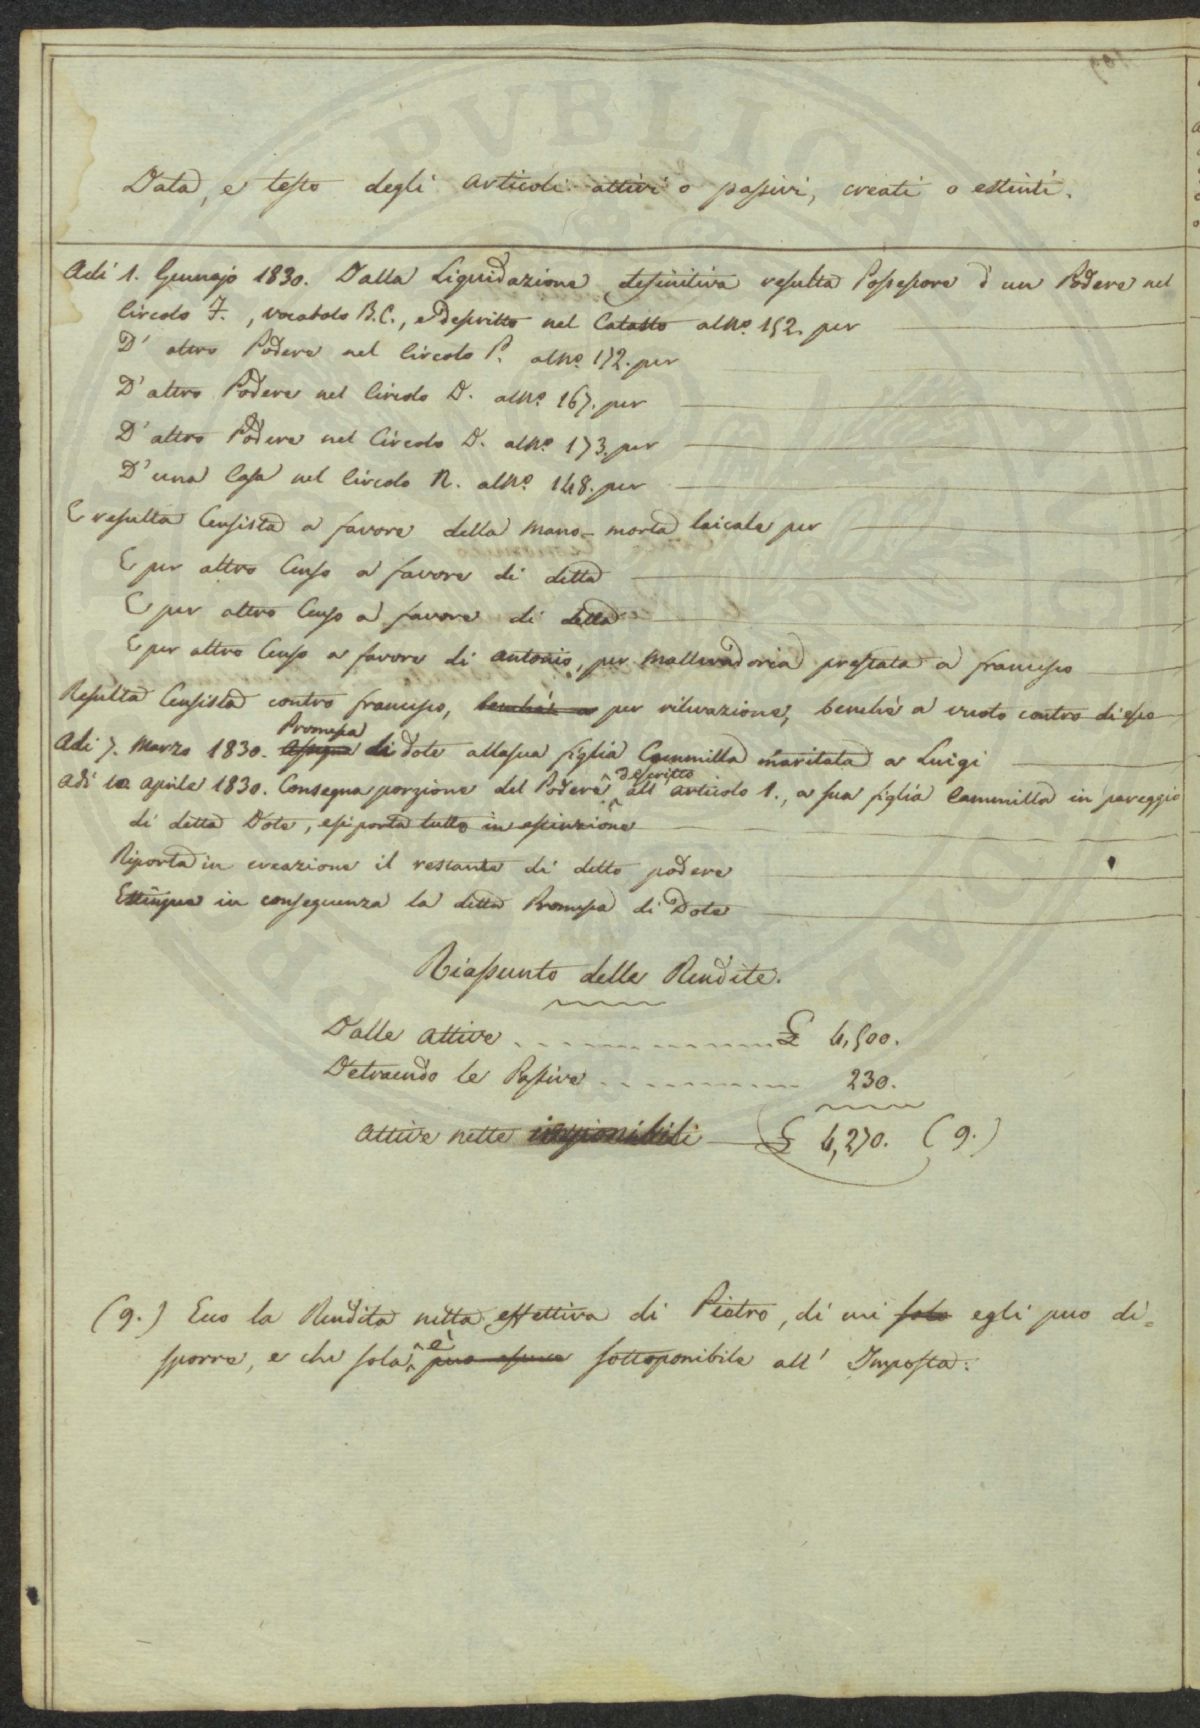 Data, e testo degli articoli attivi o passivi, creati o estinti.
Adi 1. Gennajo 1830. Dalla Liquidazione definitiva resulta Possessore d'un Podere nel
Circolo F., vocabolo B.C., e descritto nel Catasto al No. 152. per
D'altro Podere nel Circolo P. al No. 172. per
D'altro Podere nel Circolo D. al No. 167. per
D'altro Podere nel Circolo D. al No. 173. per
D'una Casa nel Circolo N. al No. 148. per
E resulta Censista a favore della Mano-morta laicale per
E per altro Censo a favore di detta
E per altro Censo a favore di detta
E per altro Censo a favore di Antonio, per Mallevadoria prestata a Francesco
Resulta Censista contro Francesco, benchè a per rilevazione, benchè a vuoto contro di esso
Promessa
Adi 7. Marzo 1830. di dote alla sua figlia Cammilla maritata a Luigi
descritto
Adi 10 Aprile 1830. Consegna porzione del Podere all'articolo 1., a sua figlia Cammilla in pareggio
di detta Dote, e si porta tutto in estinzione
Riporta in creazione il restante di detto podere
Estingue in conseguenza la detta Promessa di Dote
Riassunto delle Rendite.
Dalle attive £ 4,500.
Detraendo le Passive 230.
Attive nette imponibili £ 4,270. (9.)
(9.) Ecco la Rendita netta effettiva di Pietro, di cui sola egli può di=
è
sporre, e che sola può essere sottoponibile all'Imposta.
PVBLICA